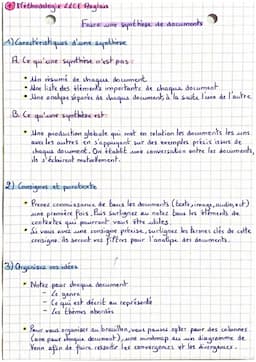 Méthodologie LLCE Anglais
Faire une synthèse de documents
1) Caractéristiques d'une synthèse
A. Ce qu'une synthèse n'est pas :
• Un résumé de chaque document
• Une liste des éléments importants de chaque document
• Une analyse séparée de chaque document, à la suite l'une de l'autre
B. Ce qu'une synthèse est :
• Une production globale qui met en relation les documents les uns
avec les autres en s'appuyant sur des exemples précis issus de
chaque document. On établit une conversation entre les documents,
ils s'éclairent mutuellement.
2) Consignes et paratexte
• Prenez connaissance de tous les documents (texte, image, audio, etc)
une première fois. Puis surlignez ou notez tous les éléments de
contextes qui pourront vous être utiles.
• Si vous avez une consigne précise, surlignez les termes clés de cette
consigne. Ils seront vos filtres pour l'analyse des documents.
3) Organisez vos idées
• Notez pour chaque document
- Le genre
- Ce qui est décrit ou représenté
- Les thèmes abordés
• Pour vous organiser au brouillon, vous pouvez opter pour des colonnes
(une pour chaque document), une mindmap ou un diagramme de
Venn afin de faire ressortir les convergences et les divergences.